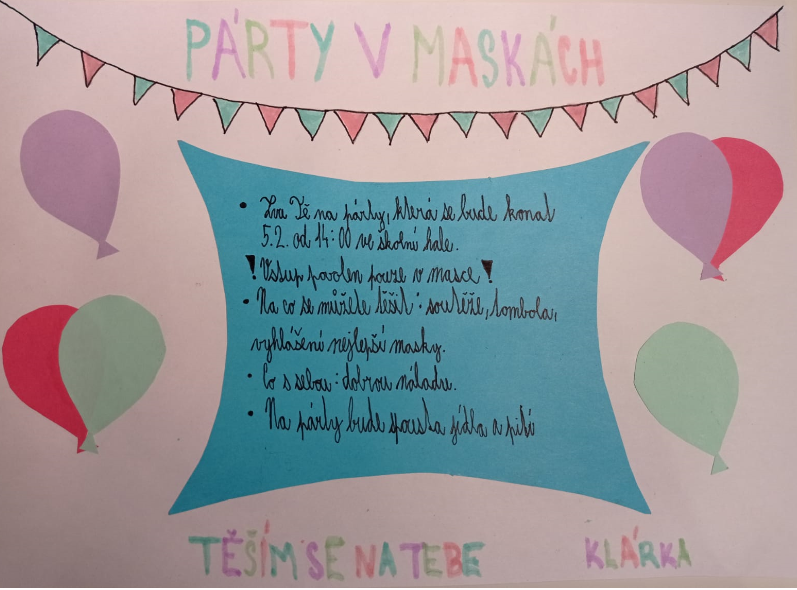 PÁRTY V MASKÁCH
• Zvu Tě na párty, která se bude konat
5.2. od 14:00 ve školní hale.
! Vstup povolen pouze v masce !
• Na co se můžete těšit: soutěže, tombola,
vyhlášení nejlepší masky.
• Co s sebou: dobrou náladu.
• Na párty bude spousta jídla a pití
TĚŠÍM SE NA TEBE KLÁRKA